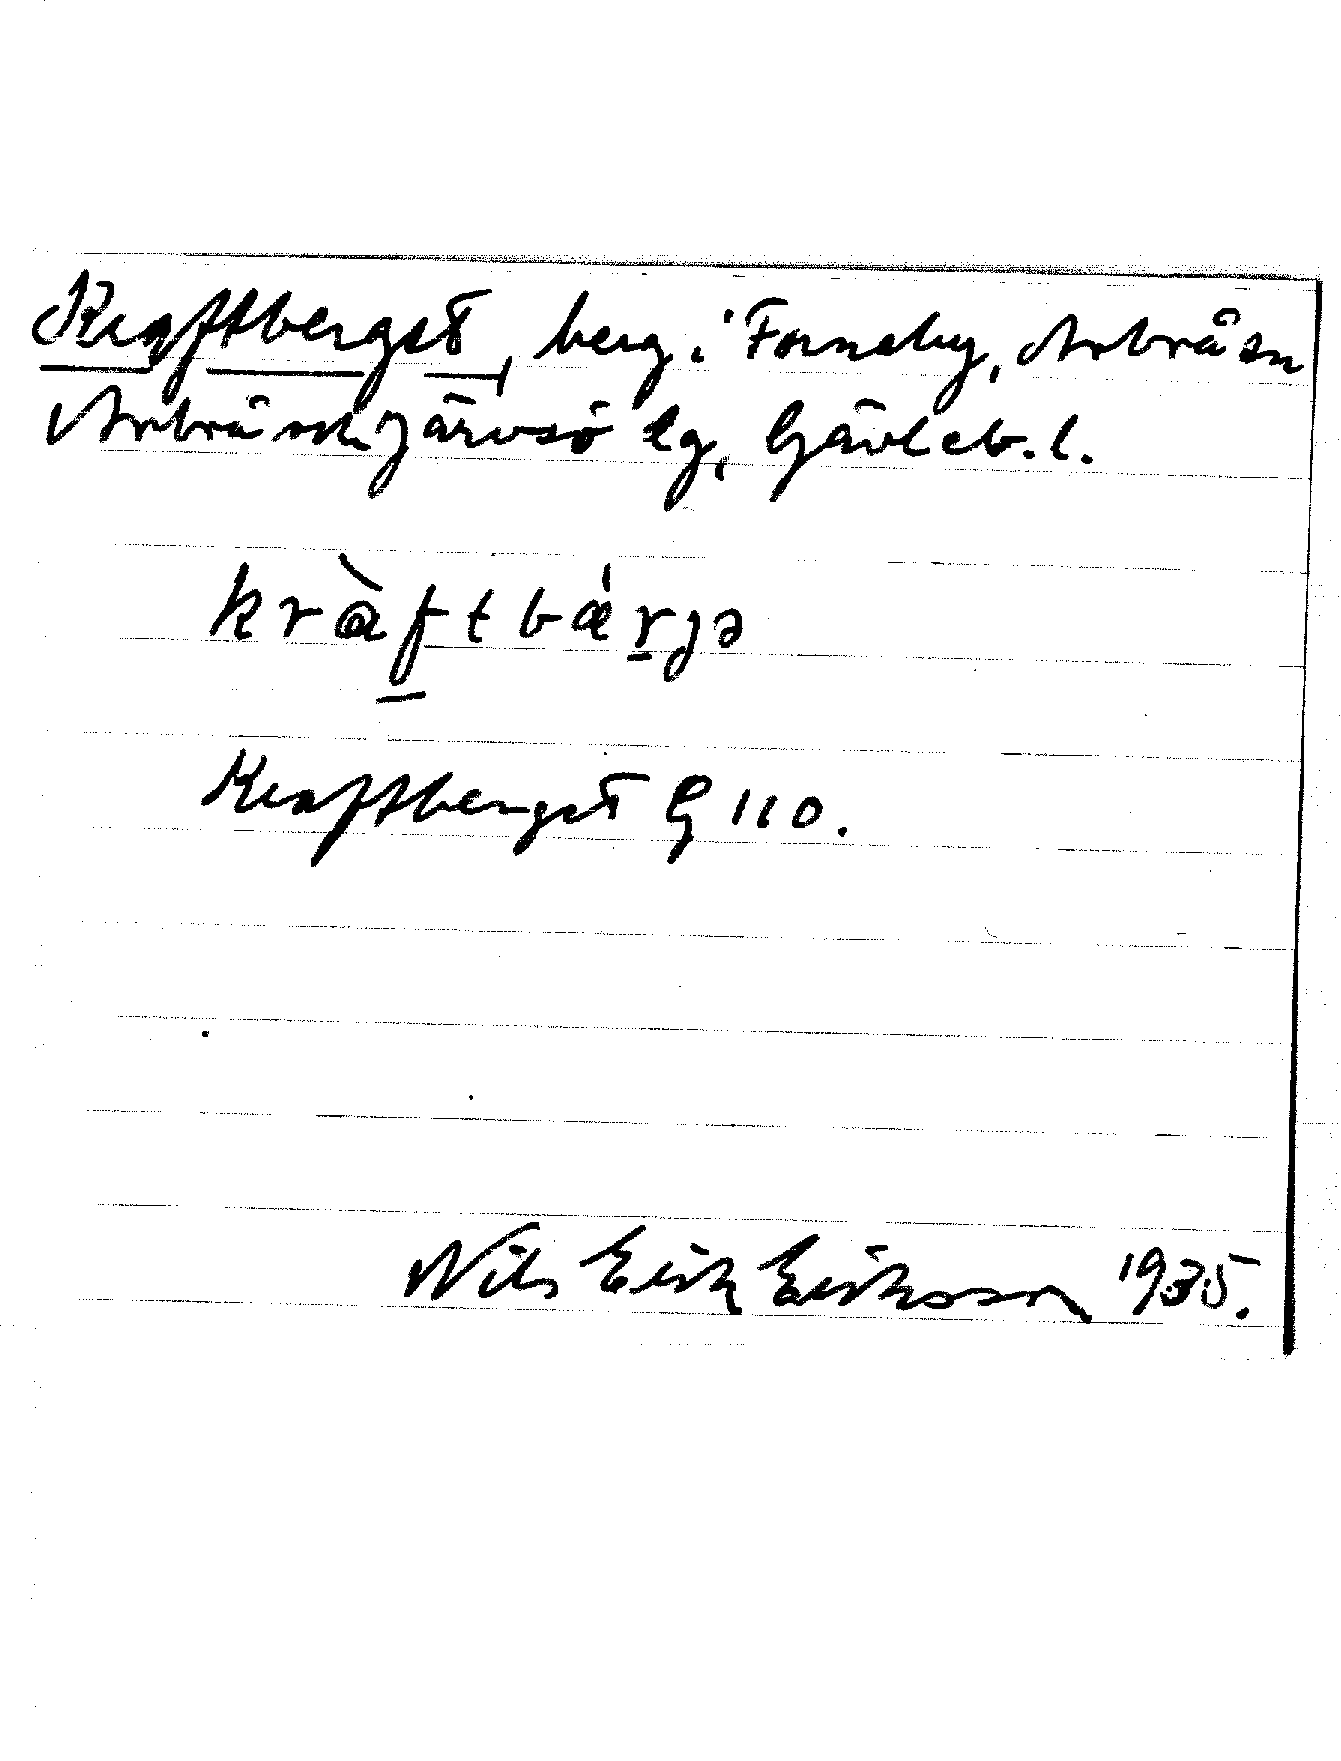 Kraftberget, berg i Forneby, Arbrå sn
Arbrå och Järvsö tg, Gävleb. l.
kràftbǽrgə
Kraftberget G 110.
Nils Erik Eriksson 1935.